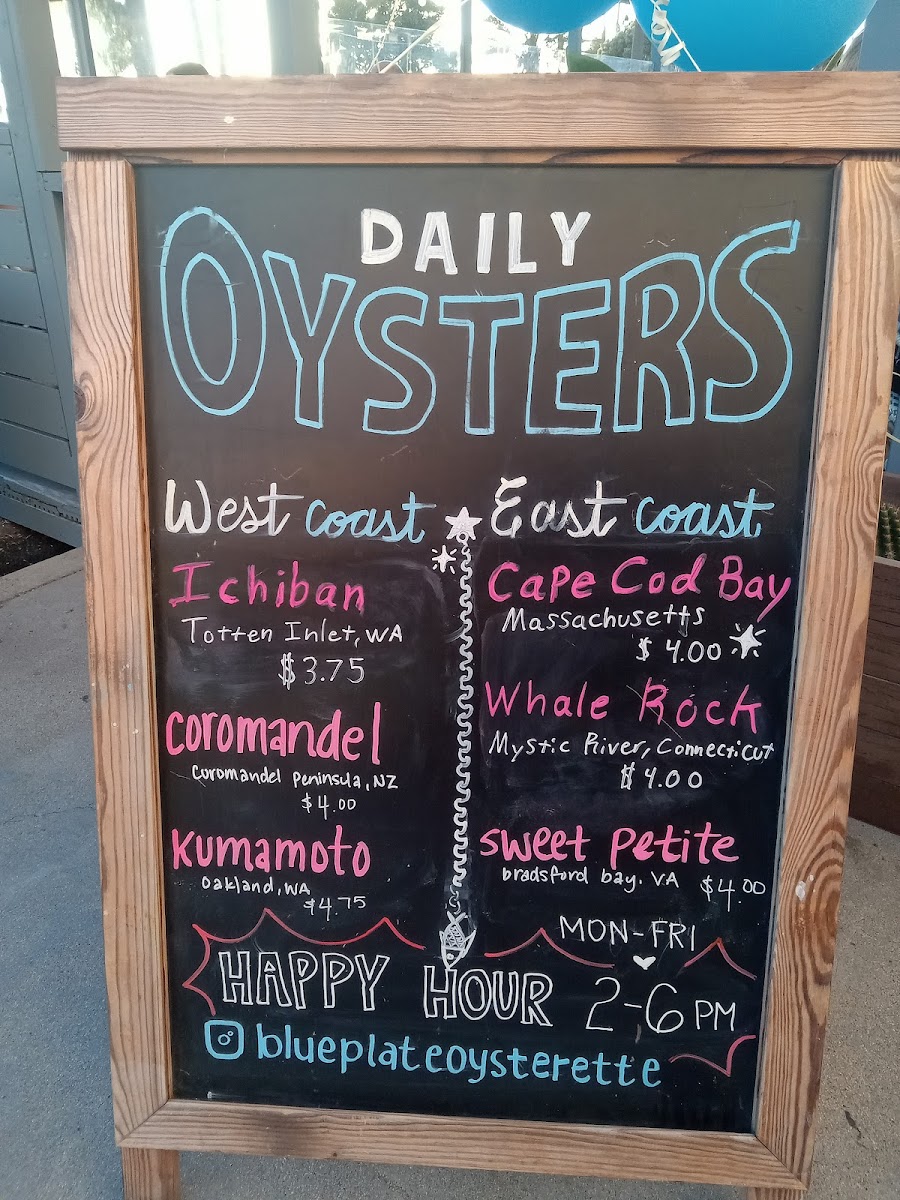 DAILY
OYSTERS
West coast
Ichiban
Totten Inlet, WA
$3.75
coromandel
Coromandel Peninsula, NZ
$4.00
kumamoto
Oakland, WA
$4.75
East coast
Cape Cod Bay
Massachusetts
$4.00
Whale Rock
Mystic River, Connecticut
$4.00
sweet petite
bradsford bay. VA $4.00
MON-FRI
HAPPY HOUR 2-6PM
blueplateoysterette